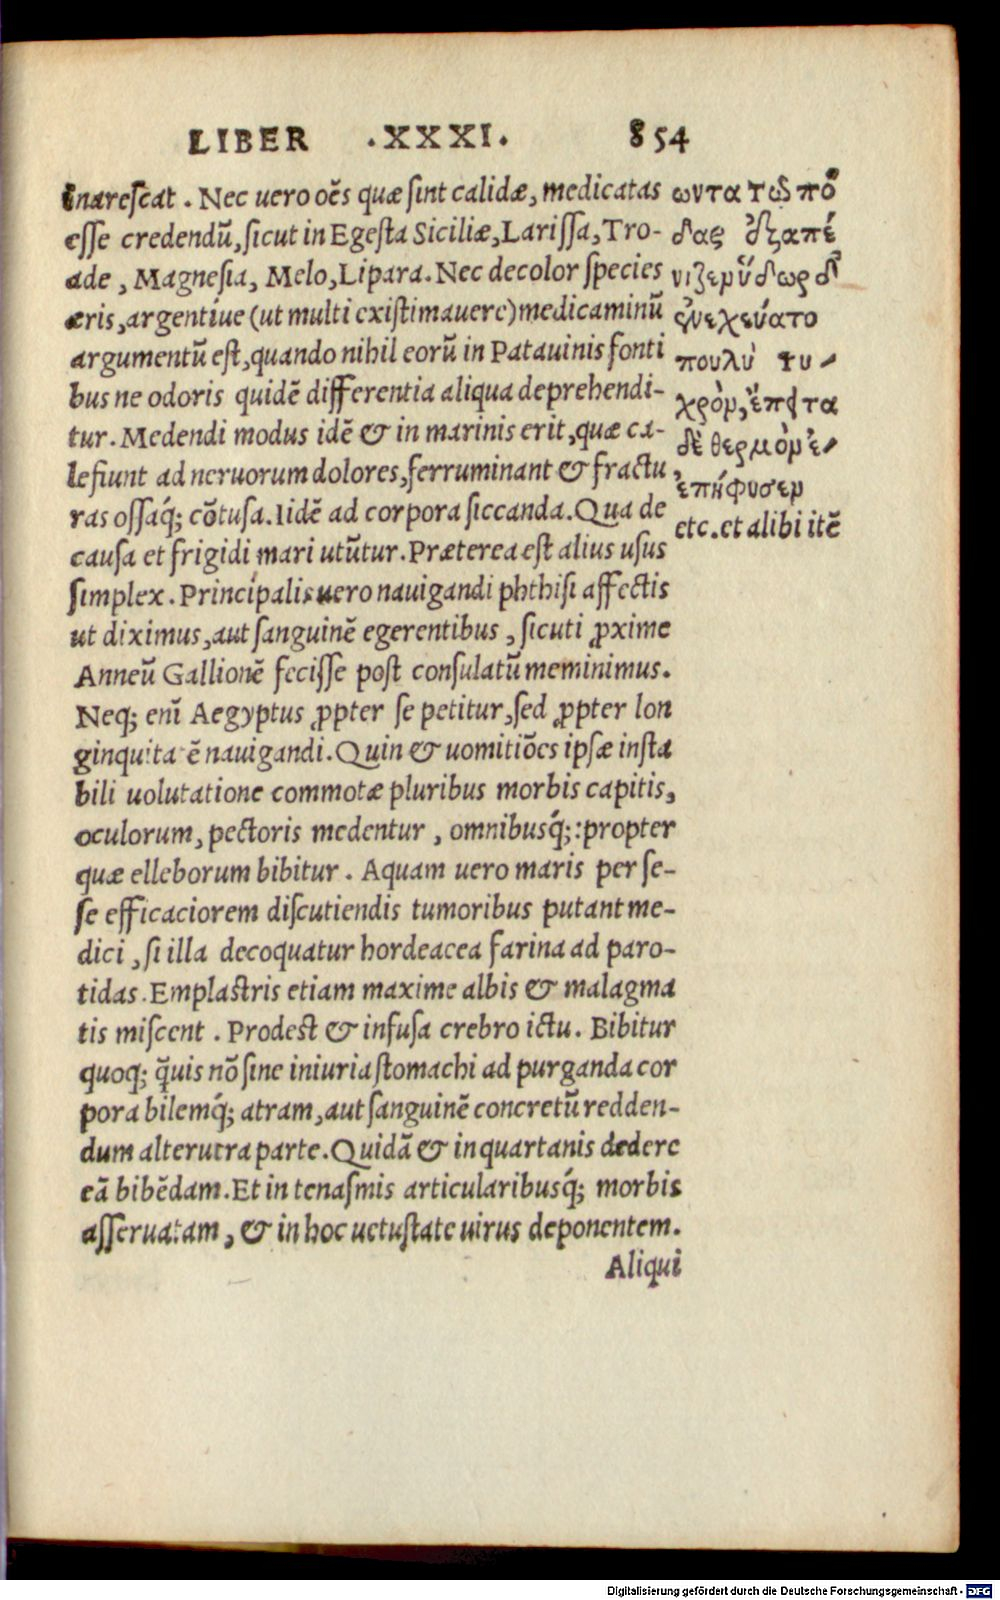 LIBER .XXXI. 854
inarescat. Nec uero oẽs quæ sint calidæ, medicatas
esse credendũ, sicut in Egesta Siciliæ, Larissa, Tro-
ade, Magnesia, Melo, Lipara. Nec decolor species
æris, argentíue (ut multi existimauere) medicaminũ
argumentũ est, quando nihil eorũ in Patauinis fonti
bus ne odoris quidẽ differentia aliqua deprehendi-
tur. Medendi modus idẽ & in marinis erit, quæ ca-
lefiunt ad neruorum dolores, ferruminant & fractu
ras ossaq́; cõtusa. Iidẽ ad corpora siccanda. Qua de
causa et frigidi mari utũtur. Præterea est alius usus
simplex. Principalis uero nauigandi phthisi affectis
ut diximus, aut sanguinẽ egerentibus, sicuti ꝓxime
Anneũ Gallionẽ fecisse post consulatũ meminimus.
Neq; enĩ Aegyptus ꝓpter se petitur, sed ꝓpter lon
ginquitatẽ nauigandi. Quin & uomitiões ipsæ insta
bili uolutatione commotæ pluribus morbis capitis,
oculorum, pectoris medentur, omnibusq́;: propter
quæ elleborum bibitur. Aquam uero maris per se-
se efficaciorem discutiendis tumoribus putant me-
dici, si illa decoquatur hordeacea farina ad paro-
tidas. Emplastris etiam maxime albis & malagma
tis miscent. Prodest & infusa crebro ictu. Bibitur
quoq; q̃uis nõ sine iniuria stomachi ad purganda cor
pora bilemq́; atram, aut sanguinẽ concretũ redden-
dum alterutra parte. Quidã & in quartanis dedere
eã bibẽdam. Et in tenasmis articularibusq́; morbis
asseruatam, & in hoc uetustate uirus deponentem.
Aliqui
ωντα τῶ πό
δας ἐξαπέ
νιζεμ ὕδωρ δ᾽
ἐνεχεύατο
πουλὺ ψυ-
χρὸμ, ἔπειτα
δὲ θερμὸμ ἐ-
ἐπήφυσεμ
etc. et alibi itẽ
Digitalisierung gefördert durch die Deutsche Forschungsgemeinschaft - DFG